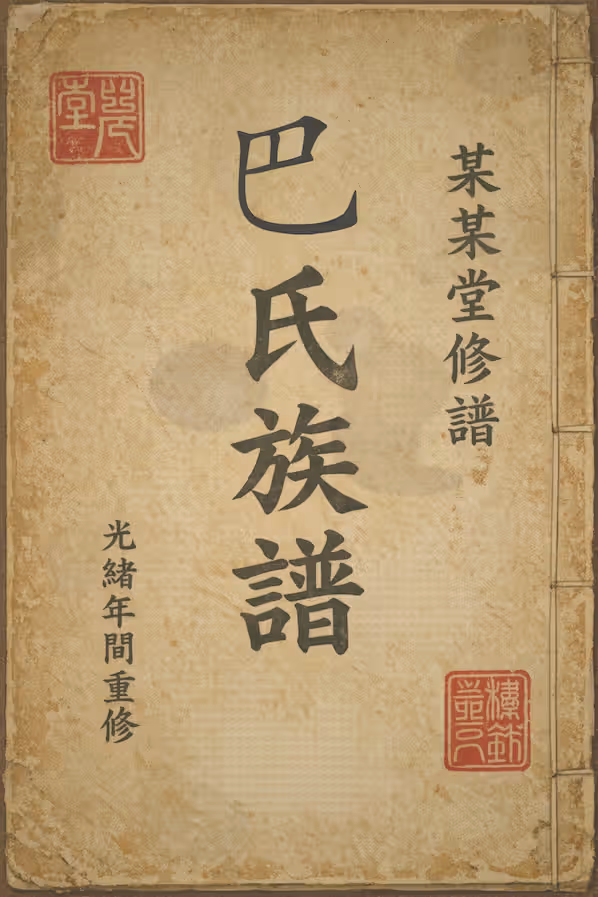 某某堂修譜
巴氏族譜
光緒年間重修